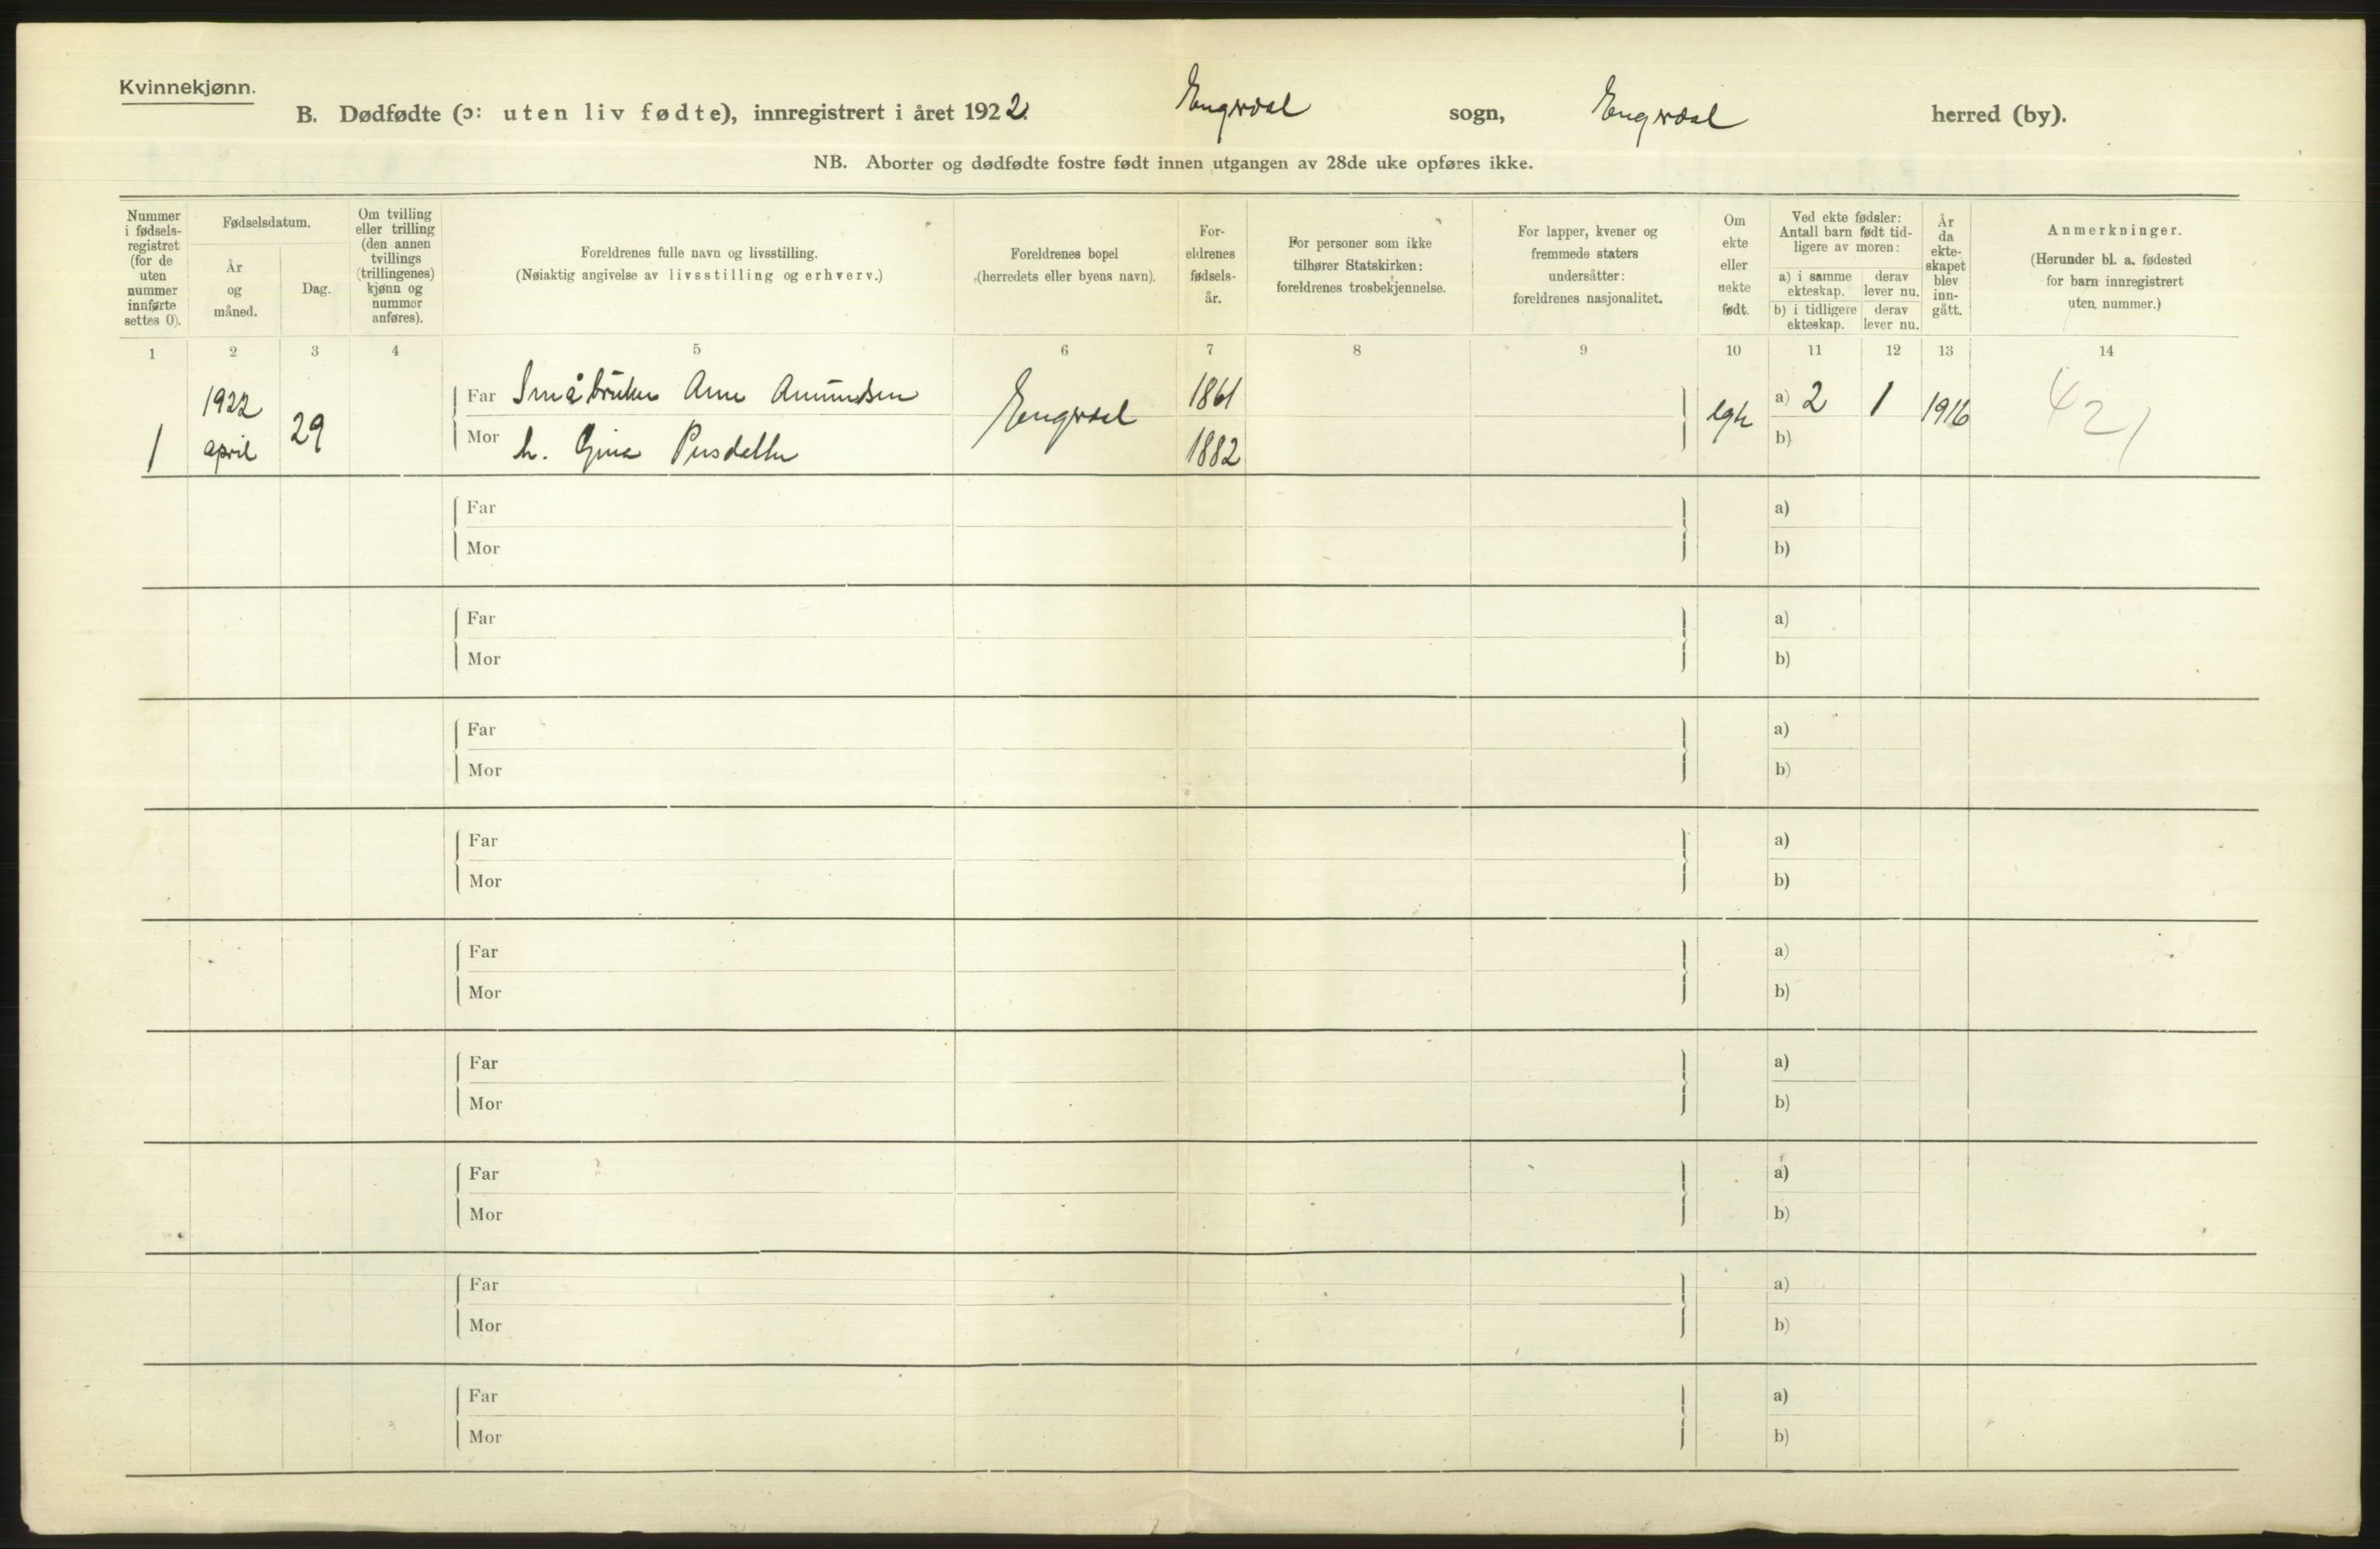 Kvinnekjønn.
B. Dødfødte (ɔ: uten liv fødte), innregistrert i året 1922. Engerdal sogn, Engerdal herred (by).
NB. Aborter og dødfødte fostre født innen utgangen av 28de uke opføres ikke.
Nummer
i fødsels-
registret
(for de
uten
nummer
innførte
settes 0).
Fødselsdatum.
År
og
måned.
Dag.
Om tvilling
eller trilling
(den annen
tvillings
(trillingenes)
kjønn og
nummer
anføres).
Foreldrenes fulle navn og livsstilling.
(Nøiaktig angivelse av livsstilling og erhverv.)
Foreldrenes bopel
(herredets eller byens navn).
For-
eldrenes
fødsels-
år.
For personer som ikke
tilhører Statskirken:
foreldrenes trosbekjennelse.
For lapper, kvener og
fremmede staters
undersåtter:
foreldrenes nasjonalitet.
Om
ekte
eller
uekte
født.
Ved ekte fødsler:
Antall barn født tid-
ligere av moren:
a) i samme
ekteskap.
derav
lever nu.
b) i tidligere
ekteskap.
derav
lever nu.
År
da
ekte-
skapet
blev
inn-
gått.
Anmerkninger.
(Herunder bl. a. fødested
for barn innregistrert
uten nummer.)
1 2 3 4 5 6 7 8 9 10 11 12 13 14
1
1922
april
29
Far Småbruker Arne Amundsen
Mor h. Gina Persdatter
Engerdal
1861
1882
egte
a) 2 1 1916
b)
421
Far a)
Mor b)
Far a)
Mor b)
Far a)
Mor b)
Far a)
Mor b)
Far a)
Mor b)
Far a)
Mor b)
Far a)
Mor b)
Far a)
Mor b)
Far a)
Mor b)